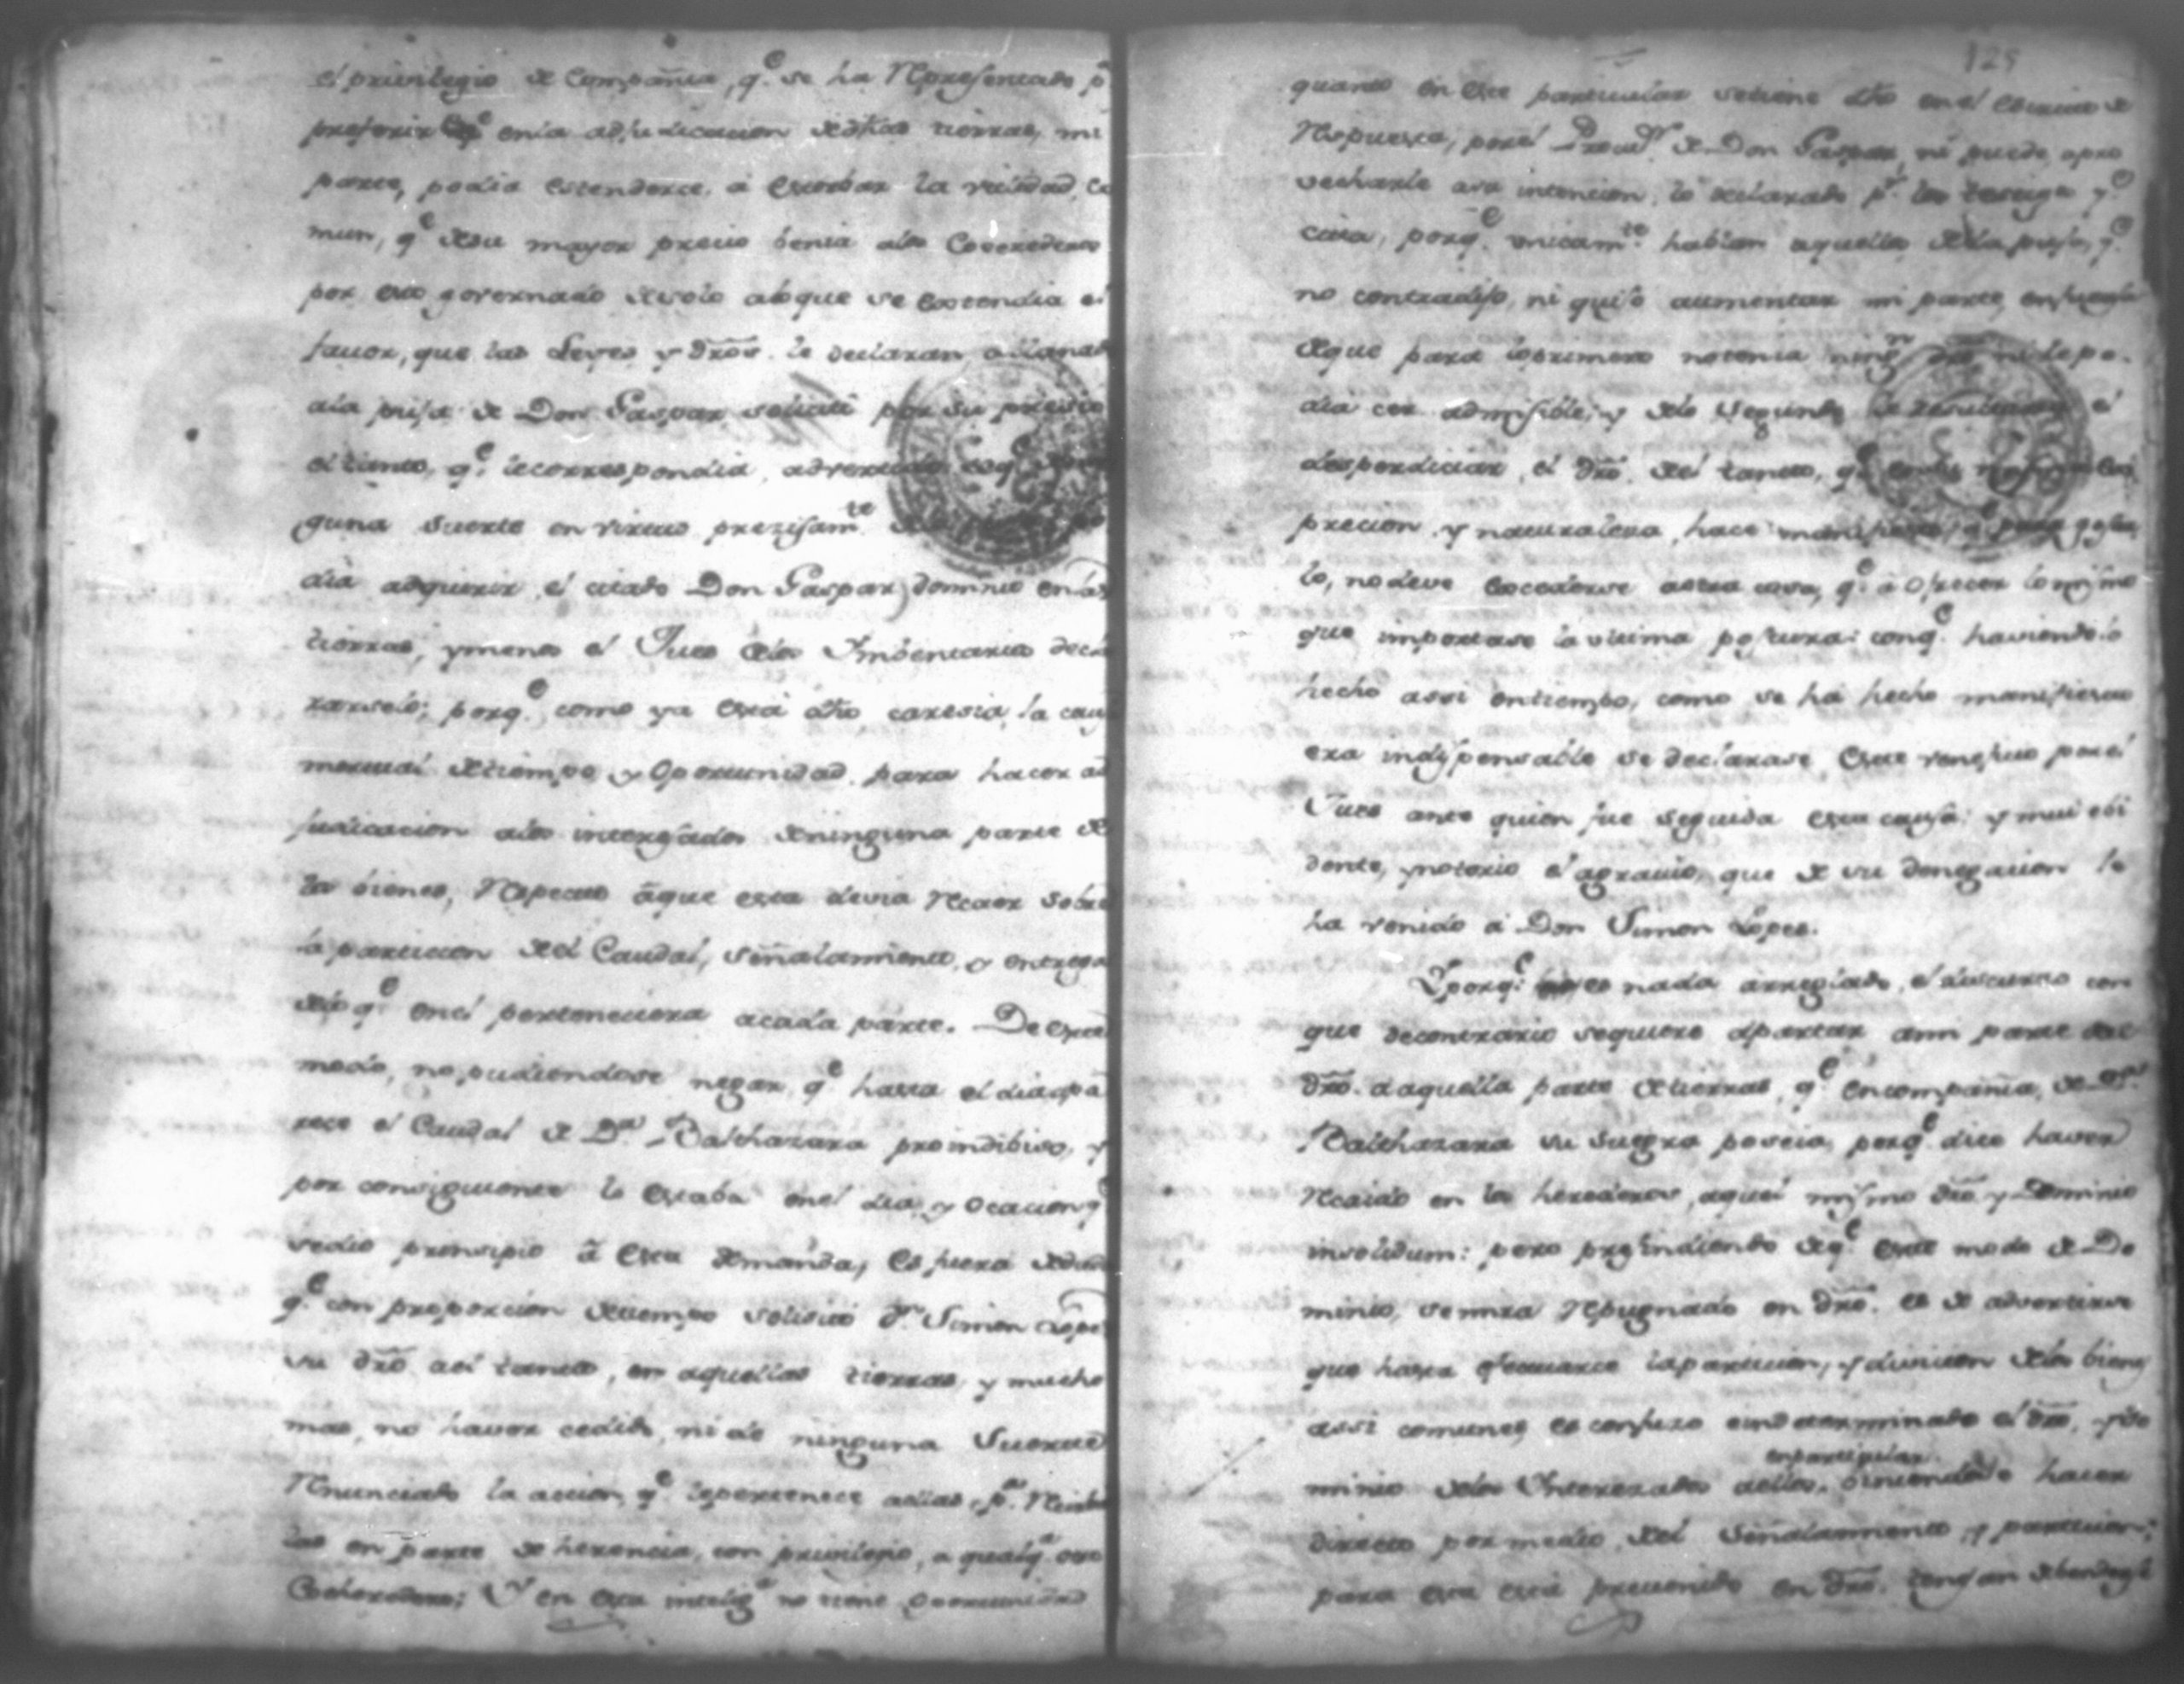 el privilegio de Compañia, q.e se ha Representado p.a
preferir en la adjudicacion de dhas tierras, mi
parte, podia estenderse, a estorbar la utilidad, co
mun, q.e de su mayor precio benia a los Coerederos
por esto governado de solo aloque se estendia el
favor, que las Leyes y dros. le declaran allanado
ala puja de Don Gaspar solicitó por su precio
el tanto, q.e le correspondia, advertido
guna suerte en virtud prezisam.te
dia adquirir el citado Don Gaspar dominio en las
tierras, y menos el Juez de los Imbentarios decla
rarselo; porq.e como ya esta dho, caresia, la cau
mortual de tiempo y Oportunidad para hacer ad
judicacion a los interesados de ninguna parte de
los bienes, Respecto á que esta devia Recaer sobre
la particion del Caudal, señalamiento, y entrega
de lo q.e en el perteneciera acada parte. De este
modo, no pudiendose negar, q.e hasta el dia apa
rece el Caudal de D.a Balthazara proindibiso, y
por consiguiente lo estaba en el dia, y ocacion q.e
se dio prinsipio á esta demanda, es fuera de duda
q.e con proporcion de tiempo solisitó D.n Simon Lopez
su dro al tanto, en aquellas tierras, y mucho
mas, no haver cedido, ni de ninguna Suerte
Renunciado la accion, q.e le pertenece a ellas, p.r Recibir
las en parte de herencia, con privilegio, a qualq.a otro
Coheredero; Y en esta intelig.a no tiene oportunidad
125
quanto en este particular se tiene dho en el escrito de
Respuesta, por el Procu.or de Don Gaspar, ni puede apro
vecharle a su intencion, lo declarado p.r los testigos q.e
cita, porq.e unicam.te hablan aquellos, de la puja, q.e
no contradijo, ni quiso aumentar mi parte, en fuerza
de que para lo primero no tenia ning.n dro, ni le po-
dia ser admisible; y de lo segundo le resultaba el
desperdiciar, el dro. del tanto, q.e
precion y naturaleza, hace manifiesto, q.e para goza
lo, no deve excederse a otra cosa, q.e a ofrecer lo mismo
que importase la ultima postura: conq.e haviendolo
hecho assi en tiempo, como se ha hecho manifiesto
era indispensable se declarase, este renglon por el
Juez ante quien fue seguida esta causa: y mui ebi
dente, y notorio el agravio, que de su denegacion le
ha venido á Don Simon Lopez.
Y porq.e es nada arreglado, el discurso con
que de contrario se quiere apartar a mi parte del
dro. a aquella parte de tierras, q.e en compañia, de D.a
Balthazara su Suegra poseia, porq.e dice haver
Recaido en los herederos, aquel mismo dro y Dominio
insolidum: pero prescindiendo de q.e este modo de Do
minio, se mira Repugnado en dro. es de advertirse
que hasta efectuarse la particion, y divicion de los bienes
assi comunes es confuso e indeterminado el dro, y do
en particular
minio de los Interezados a ellos, biniendose a hacer
directo por medio, del Señalamiento, y particion;
para esta está prevenido en dro.